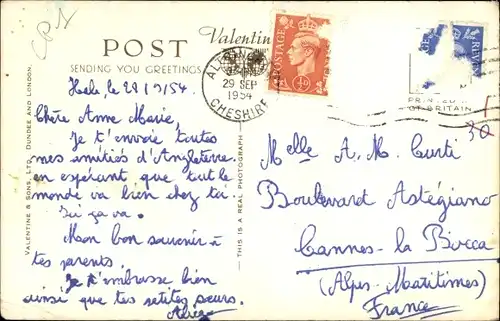 POST
Valentin
SENDING YOU GREETINGS
ALTRIN
29 SEP
1954
CHESHIRE
POSTAGE
½D
OF BRITAIN
Hale, le 28/9/54.
Chère Anne Marie,
Je t'envoie toutes
mes amitiés d'Angleterre
en espérant que tout le
monde va bien chez toi.
Ici ça va.
Mon bon souvenir à
tes parents.
Je t'embrasse bien
ainsi que tes petites sœurs.
VALENTINE & SONS, LTD., DUNDEE AND LONDON.
THIS IS A REAL PHOTOGRAPH
30
Melle A. M. Curti
Boulevard Astégiano
Cannes-la Bocca
(Alpes-Maritimes)
France